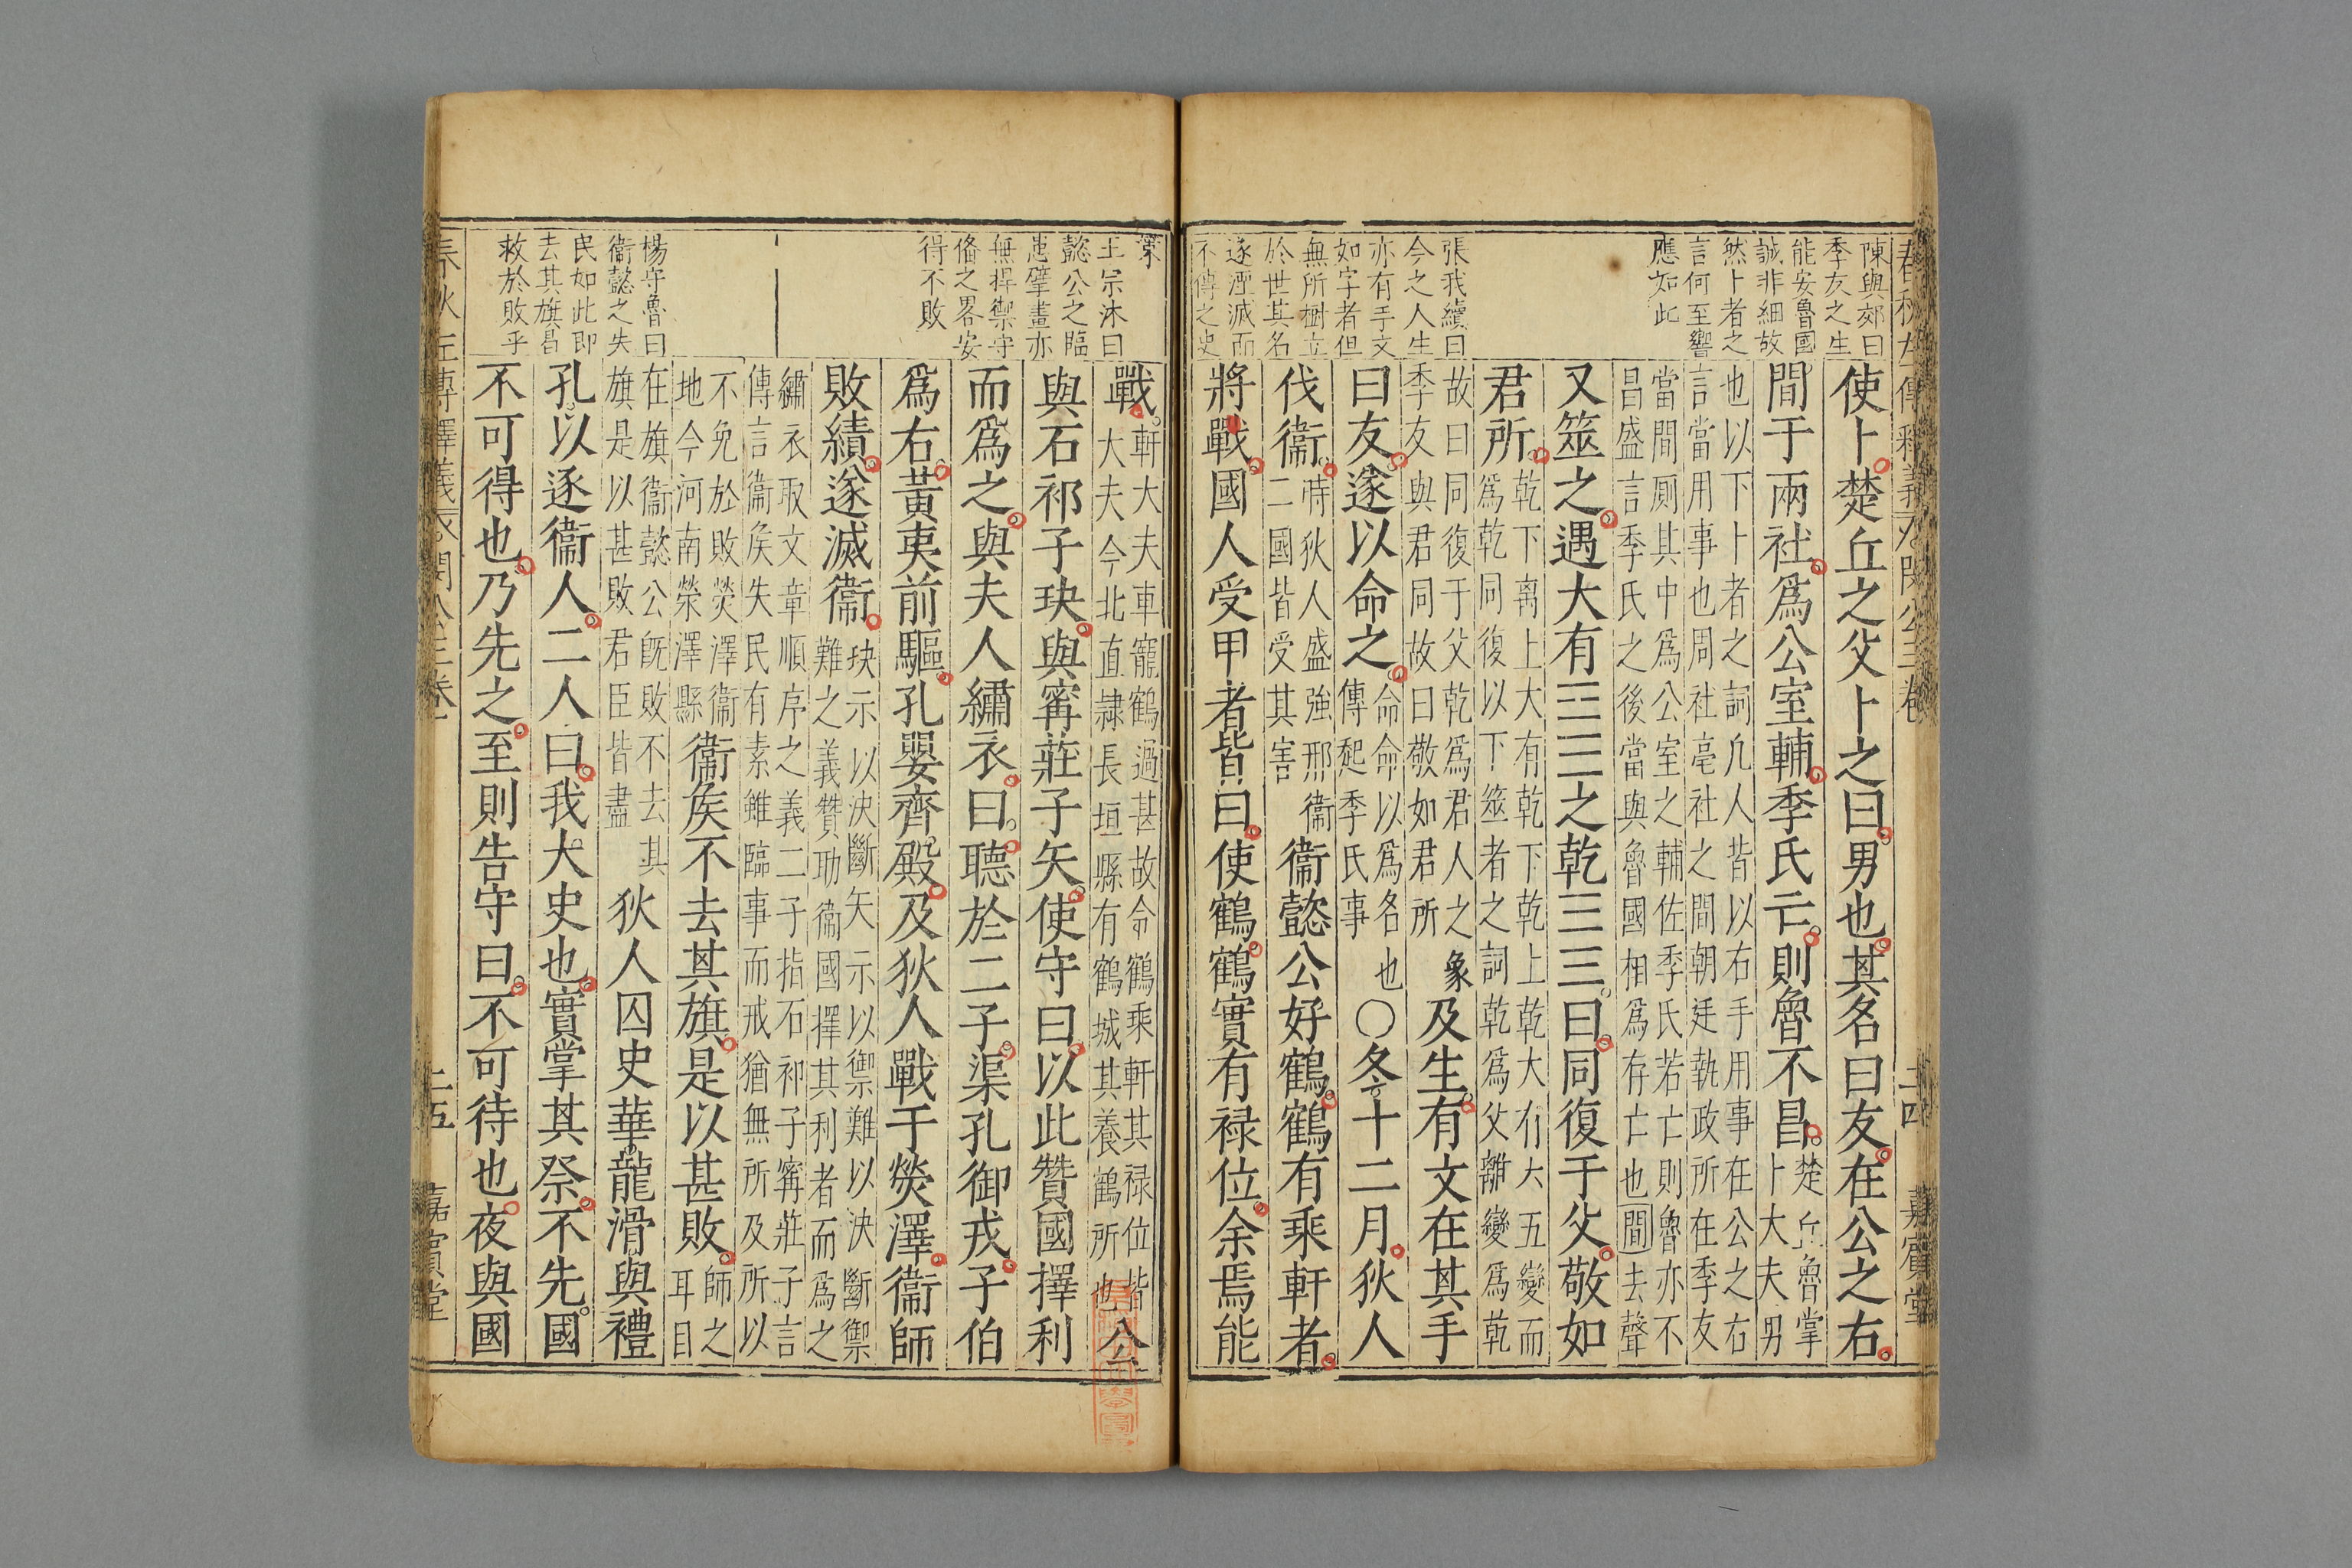 陳與郊曰
季友之生
能安魯國
誠非細故
然卜者之
言何至響
應如此
張我續曰
今之人生
亦有手文
如字者但
無所樹立
於世其名
遂湮滅而
不傳之史
使卜楚丘之父卜之曰男也其名曰友在公之右
間于兩社爲公室輔季氏亡則魯不昌
楚丘魯掌
卜大夫男
也以下卜者之詞凢人皆以右手用事在公之右
言當用事也周社亳社之間朝廷執政所在季友
當間厠其中爲公室之輔佐季氏若亡則魯亦不
昌盛言季氏之後當與魯國相爲存亡也間去聲
又筮之遇大有☲☰之乾☰☰曰同復于父敬如
君所
乾下离上大有乾下乾上乾大有六五變而
爲乾同復以下筮者之詞乾爲父離變爲乾
故曰同復于父乾爲君人之象
季友與君同故曰敬如君所
及生有文在其手
曰友遂以命之
命命以爲名也
傳起季氏事
○冬十二月狄人
伐衞
時狄人盛強邢衞
二國皆受其害
衞懿公好鶴鶴有乘軒者
將戰國人受甲者皆曰使鶴鶴實有禄位余焉能
嘉賓堂
策
王宗沐曰
懿公之臨
患擘畫亦
無捍禦守
俻之畧安
得不敗
楊守魯曰
衞懿之失
民如此即
去其旗曷
救於敗乎
戰
軒大夫車寵鶴過甚故令鶴乘軒其禄位皆
大夫今北直隷長垣縣有鶴城其養鶴所也
公
與石祁子玦與寗莊子矢使守曰以此贊國擇利
而爲之與夫人繡衣曰聽於二子渠孔御戎子伯
爲右黄夷前驅孔嬰齊殿及狄人戰于熒澤衞師
敗績遂滅衞
玦示以決斷矢示以禦難以決斷禦
難之義贊助衞國擇其利者而爲之
繡衣取文章順序之義二子指石祁子寗莊子言
傳言衞矦失民有素雖臨事而戒猶無所及所以
不免於敗熒澤衞
地今河南榮澤縣
衞矦不去其旗是以甚敗
師之
耳目
在旗衞懿公旣敗不去其
旗是以甚敗君臣皆盡
狄人囚史華龍滑與禮
孔以逐衞人二人曰我大史也實掌其祭不先國
不可得也乃先之至則告守曰不可待也夜與國
二五
嘉賓堂